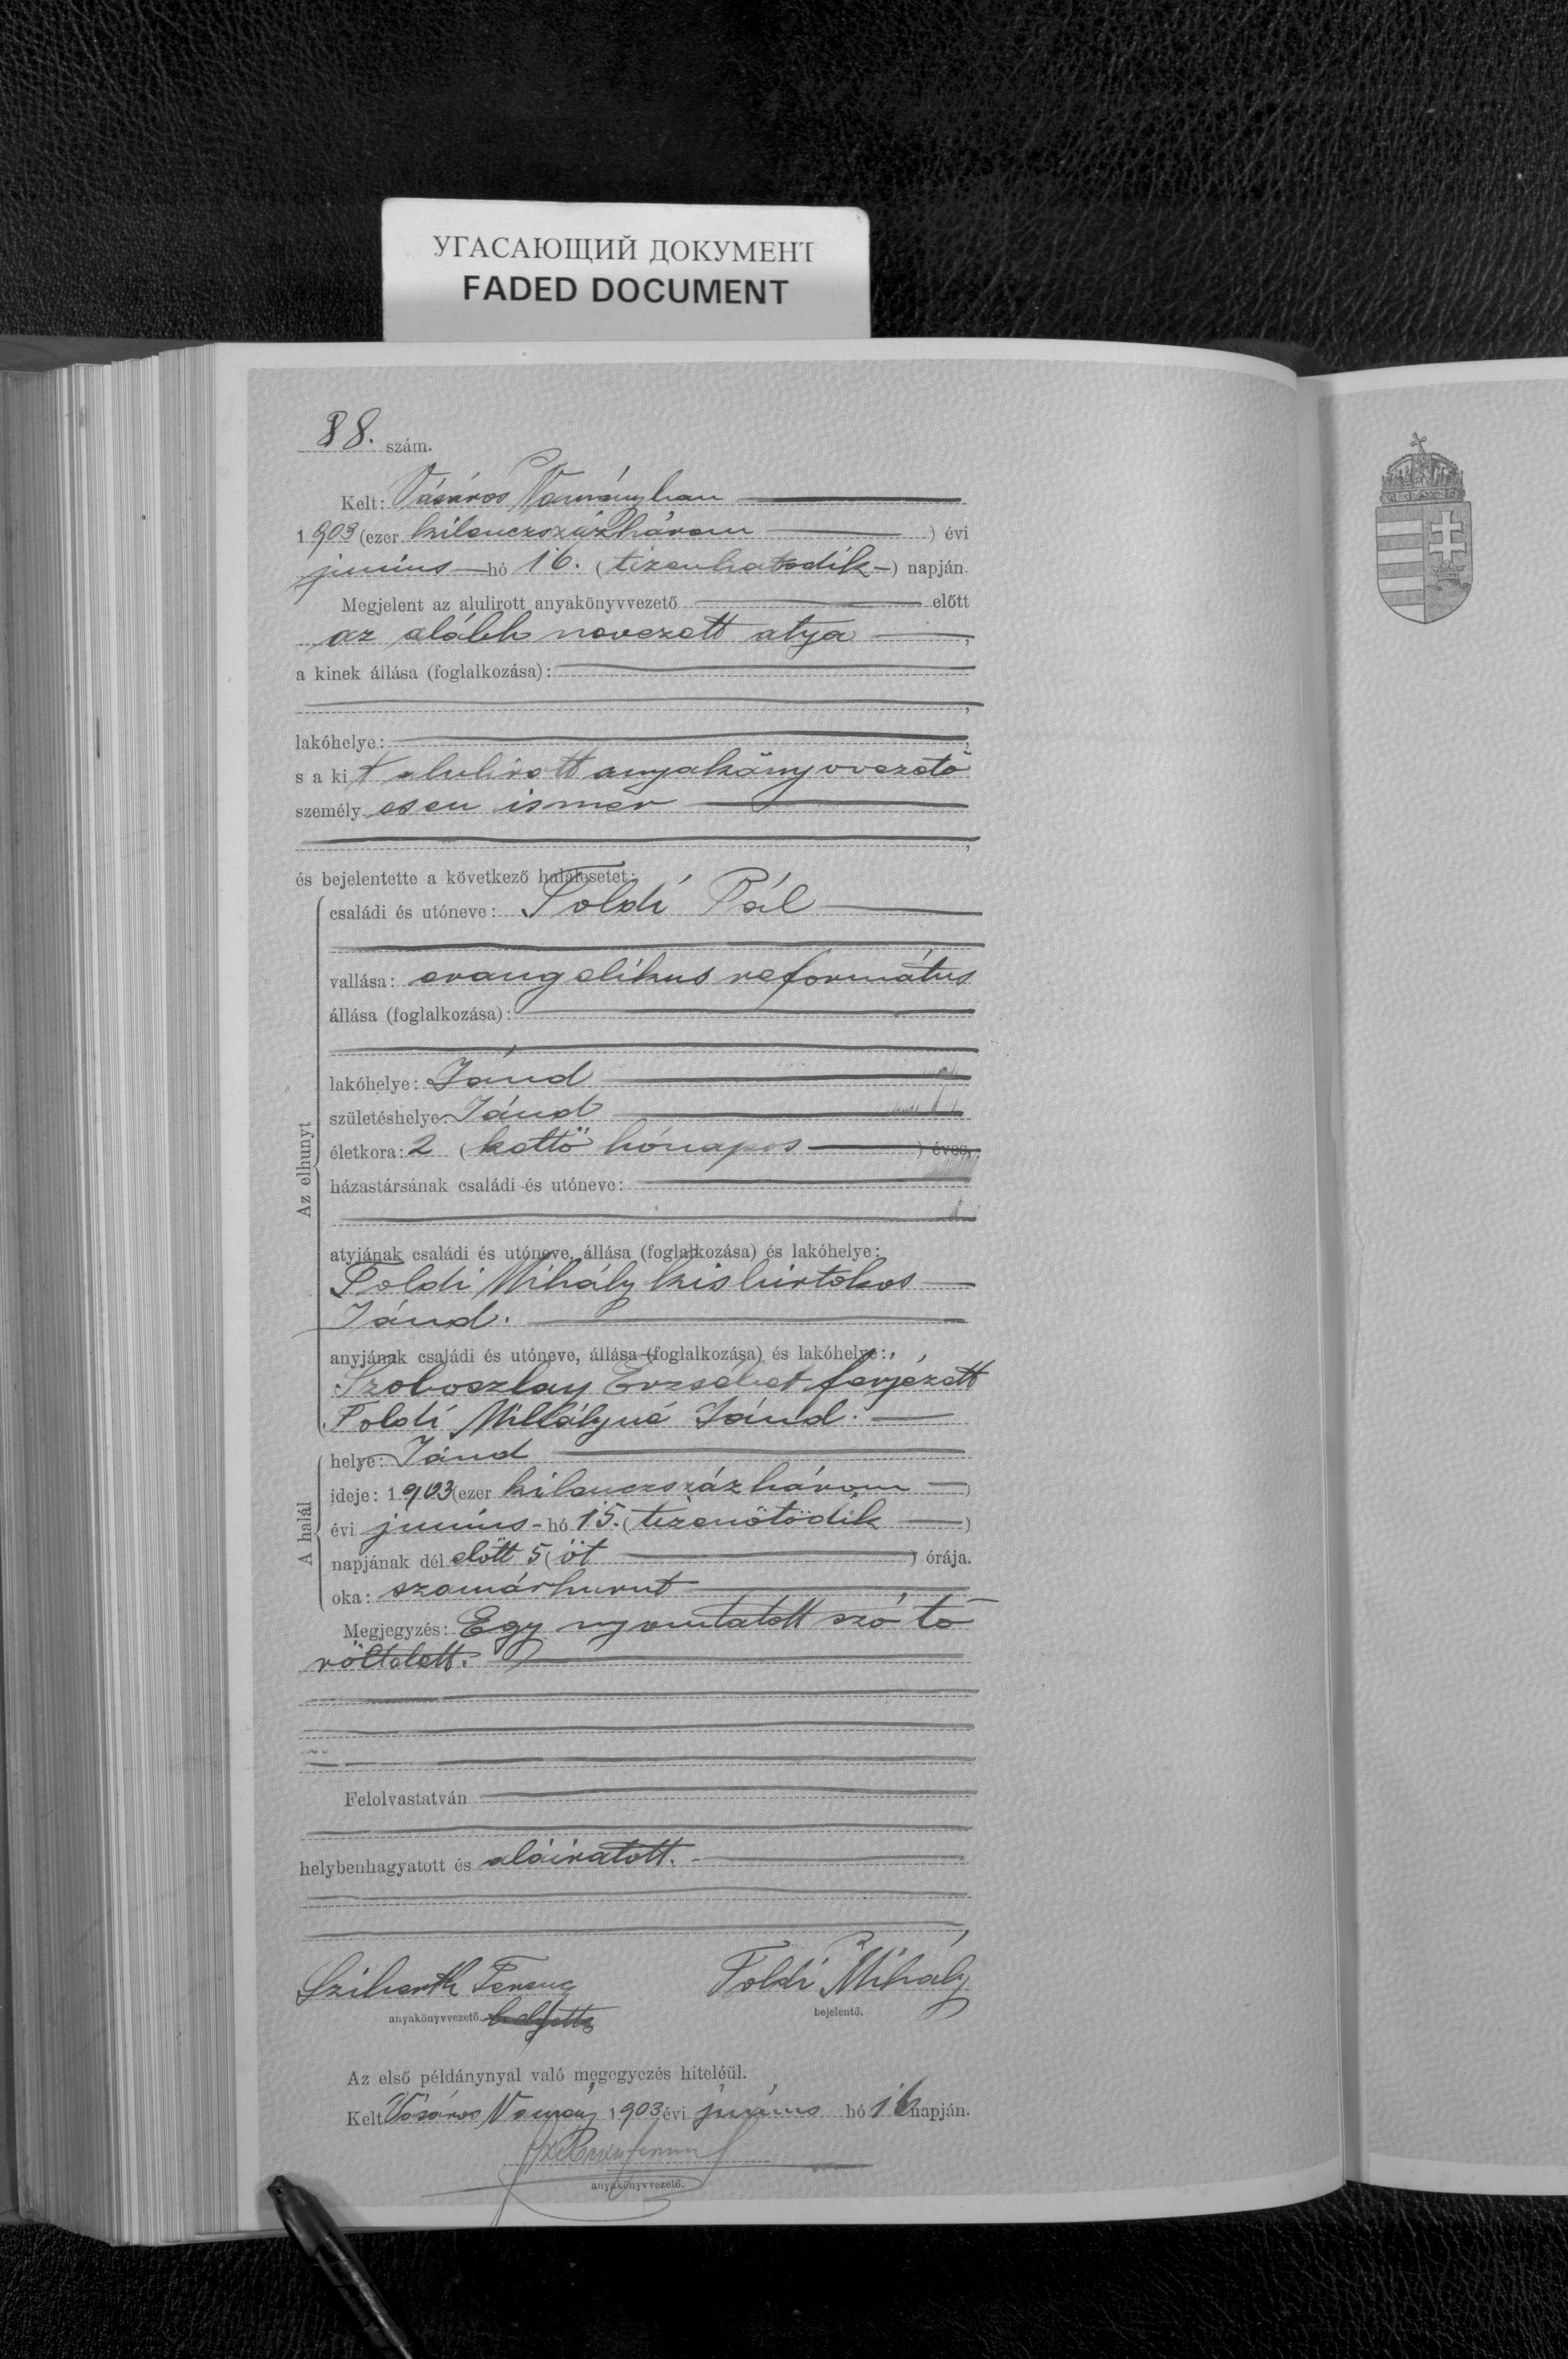 УГАСАЮЩИЙ ДОКУМЕНТ
FADED DOCUMENT
88. szám.
Kelt: Vásáros Naményban
1903 (ezer kilenczszázhárom ) évi
junius hó 16. ( tizenhatodik ) napján.
Megjelent az alulirott anyakönyvvezető előtt
az alább nevezett atya ,
a kinek állása (foglalkozása):
,
lakóhelye: ,
s a ki t alulirott anyakönyvvezető
személy esen ismer
,
és bejelentette a következő halálesetet:
Az elhunyt
családi és utóneve: Toldi Pál
vallása: evangelikus református
állása (foglalkozása):
lakóhelye: Jánd
születéshelye: Jánd
életkora: 2 ( kettő hónapos ) éves,
házastársának családi és utóneve:
atyjának családi és utóneve, állása (foglalkozása) és lakóhelye:
Toldi Mihály kisbirtokos
Jánd.
anyjának családi és utóneve, állása (foglalkozása) és lakóhelye:
Szoboszlay Erzsébet férjezett
Toldi Mihályné Jánd.
A halál
helye: Jánd
ideje: 1903 (ezer kilenczszázhárom )
évi junius hó 15. ( tizenötödik )
napjának dél előtt 5 ( öt ) órája.
oka: szamárhurut
Megjegyzés: Egy nyomtatott szó tö
röltetett.
Felolvastatván
helybenhagyatott és aláiratott.
,
Ferenc Toldi Mihály
anyakönyvvezető. helyettes bejelentő.
Az első példánynyal való megegyezés hiteléül.
Kelt Vásáros Namény 1903 évi junius hó 16 napján.
anyakönyvvezető.